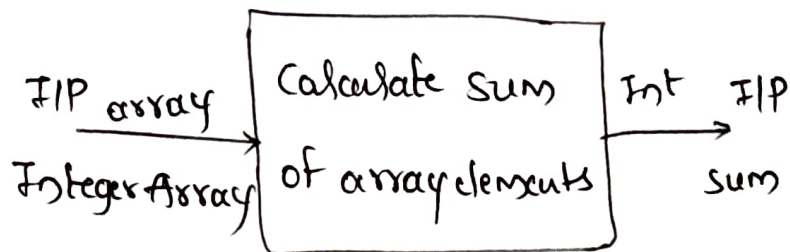 I/P array
Integer Array
Calculate sum
of array elements
Int I/P
sum